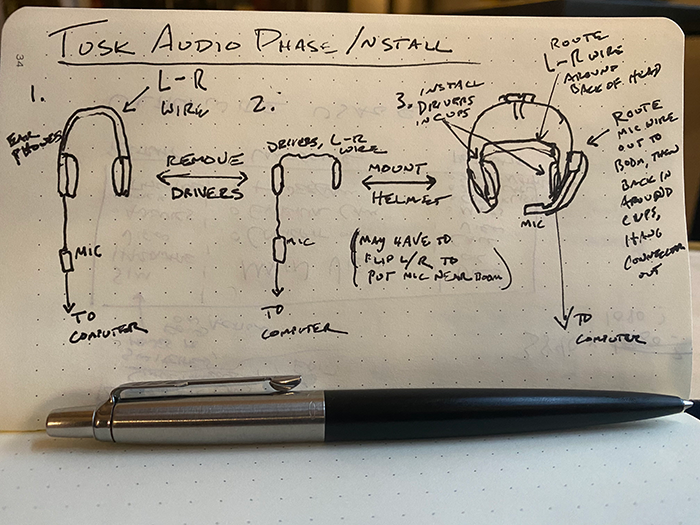 34
TUSK AUDIO PHASE/INSTALL
1.
L-R
WIRE
EAR
PHONES
MIC
TO
COMPUTER
REMOVE
DRIVERS
2.
DRIVERS, L-R
WIRE
MIC
TO
COMPUTER
MOUNT
HELMET
(MAY HAVE TO
FLIP L/R TO
PUT MIC NEAR BOOM)
3. INSTALL
DRIVERS
IN CUPS
ROUTE
L-R WIRE
AROUND
BACK OF HEAD
MIC
TO
COMPUTER
ROUTE
MIC WIRE
OUT TO
BOOM, THEN
BACK IN
AROUND
CUPS,
HANG
CONNECTOR
OUT